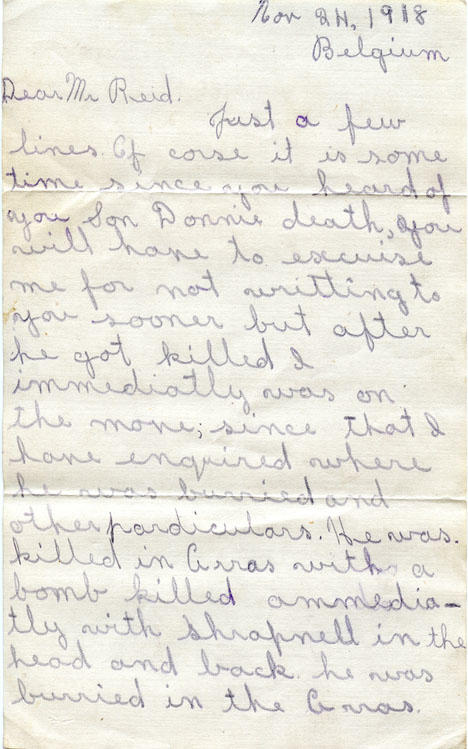 Nov 24, 1918
Belgium
Dear Mr Reid.
Just a few
lines. Of corse it is some
time since you heard of
you Son Donnie death, you
will have to excuise
me for not writting to
you sooner but after
he got killed I
immediatly was on
the move; since that I
have enquired where
he was burried and
other pardiculars. He was.
killed in Arras with a
bomb killed ammedia-
tly with shrapnell in the
head and back. he was
burried in the Arras.